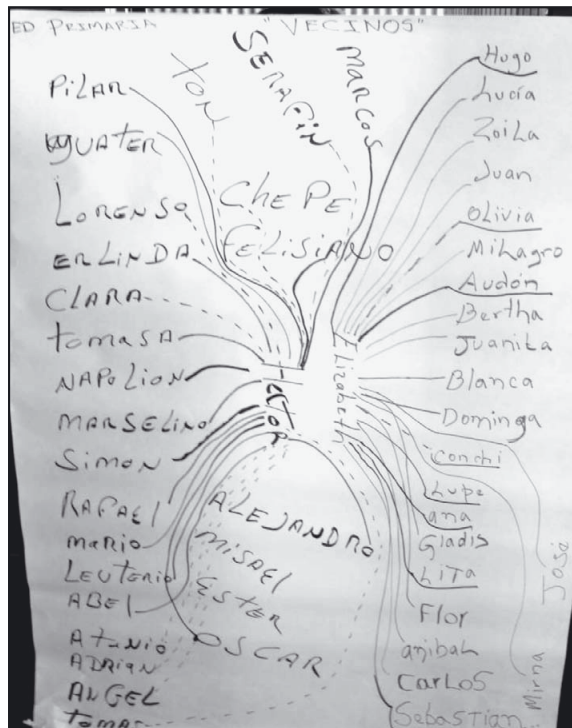 ED PRIMARIA "VECINOS"
PiLAR
TON
SERAFiN
MARCOS
GUATER
LORENSO
ERLiNDA
CLARA
tomasA
NAPOLION
MARSELino
SimoN
RAFAEl
mario
LEUTERio
ABEl
Atunio
ADRiAN
ANGEL
tomas
CHEPE
FELISIANO
Elizabeth
ALEJANDRO
MiSAEl
ESTER
OSCAR
Hugo
Lucía
Zoila
Juan
Olivia
Milagro
Audón
Bertha
Juanita
Blanca
Dominga
Conchi
Lupe
ana
Gladis
LiTa
Flor
anibal
CarLos
Sebastian
José
Mirna